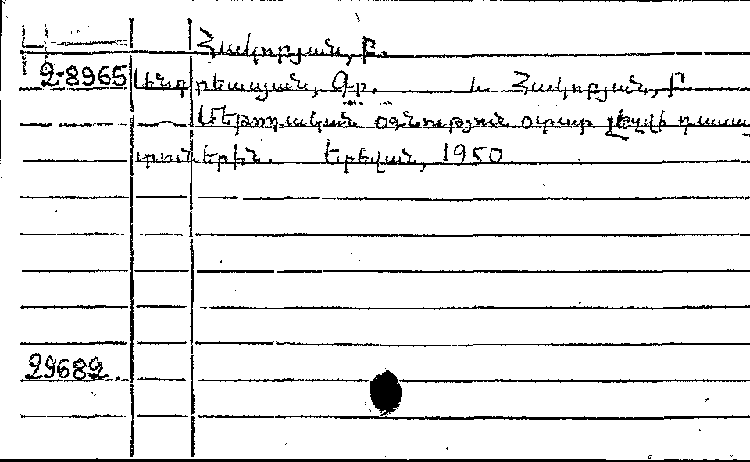 Հակոբյան, Բ.
2-8965 Անդրեասյան, Գր. և Հակոբյան, Բ
Մեթոդական օգնություն օտար լեզվի դասա
տուներին. Երեվան, 1950
29682.